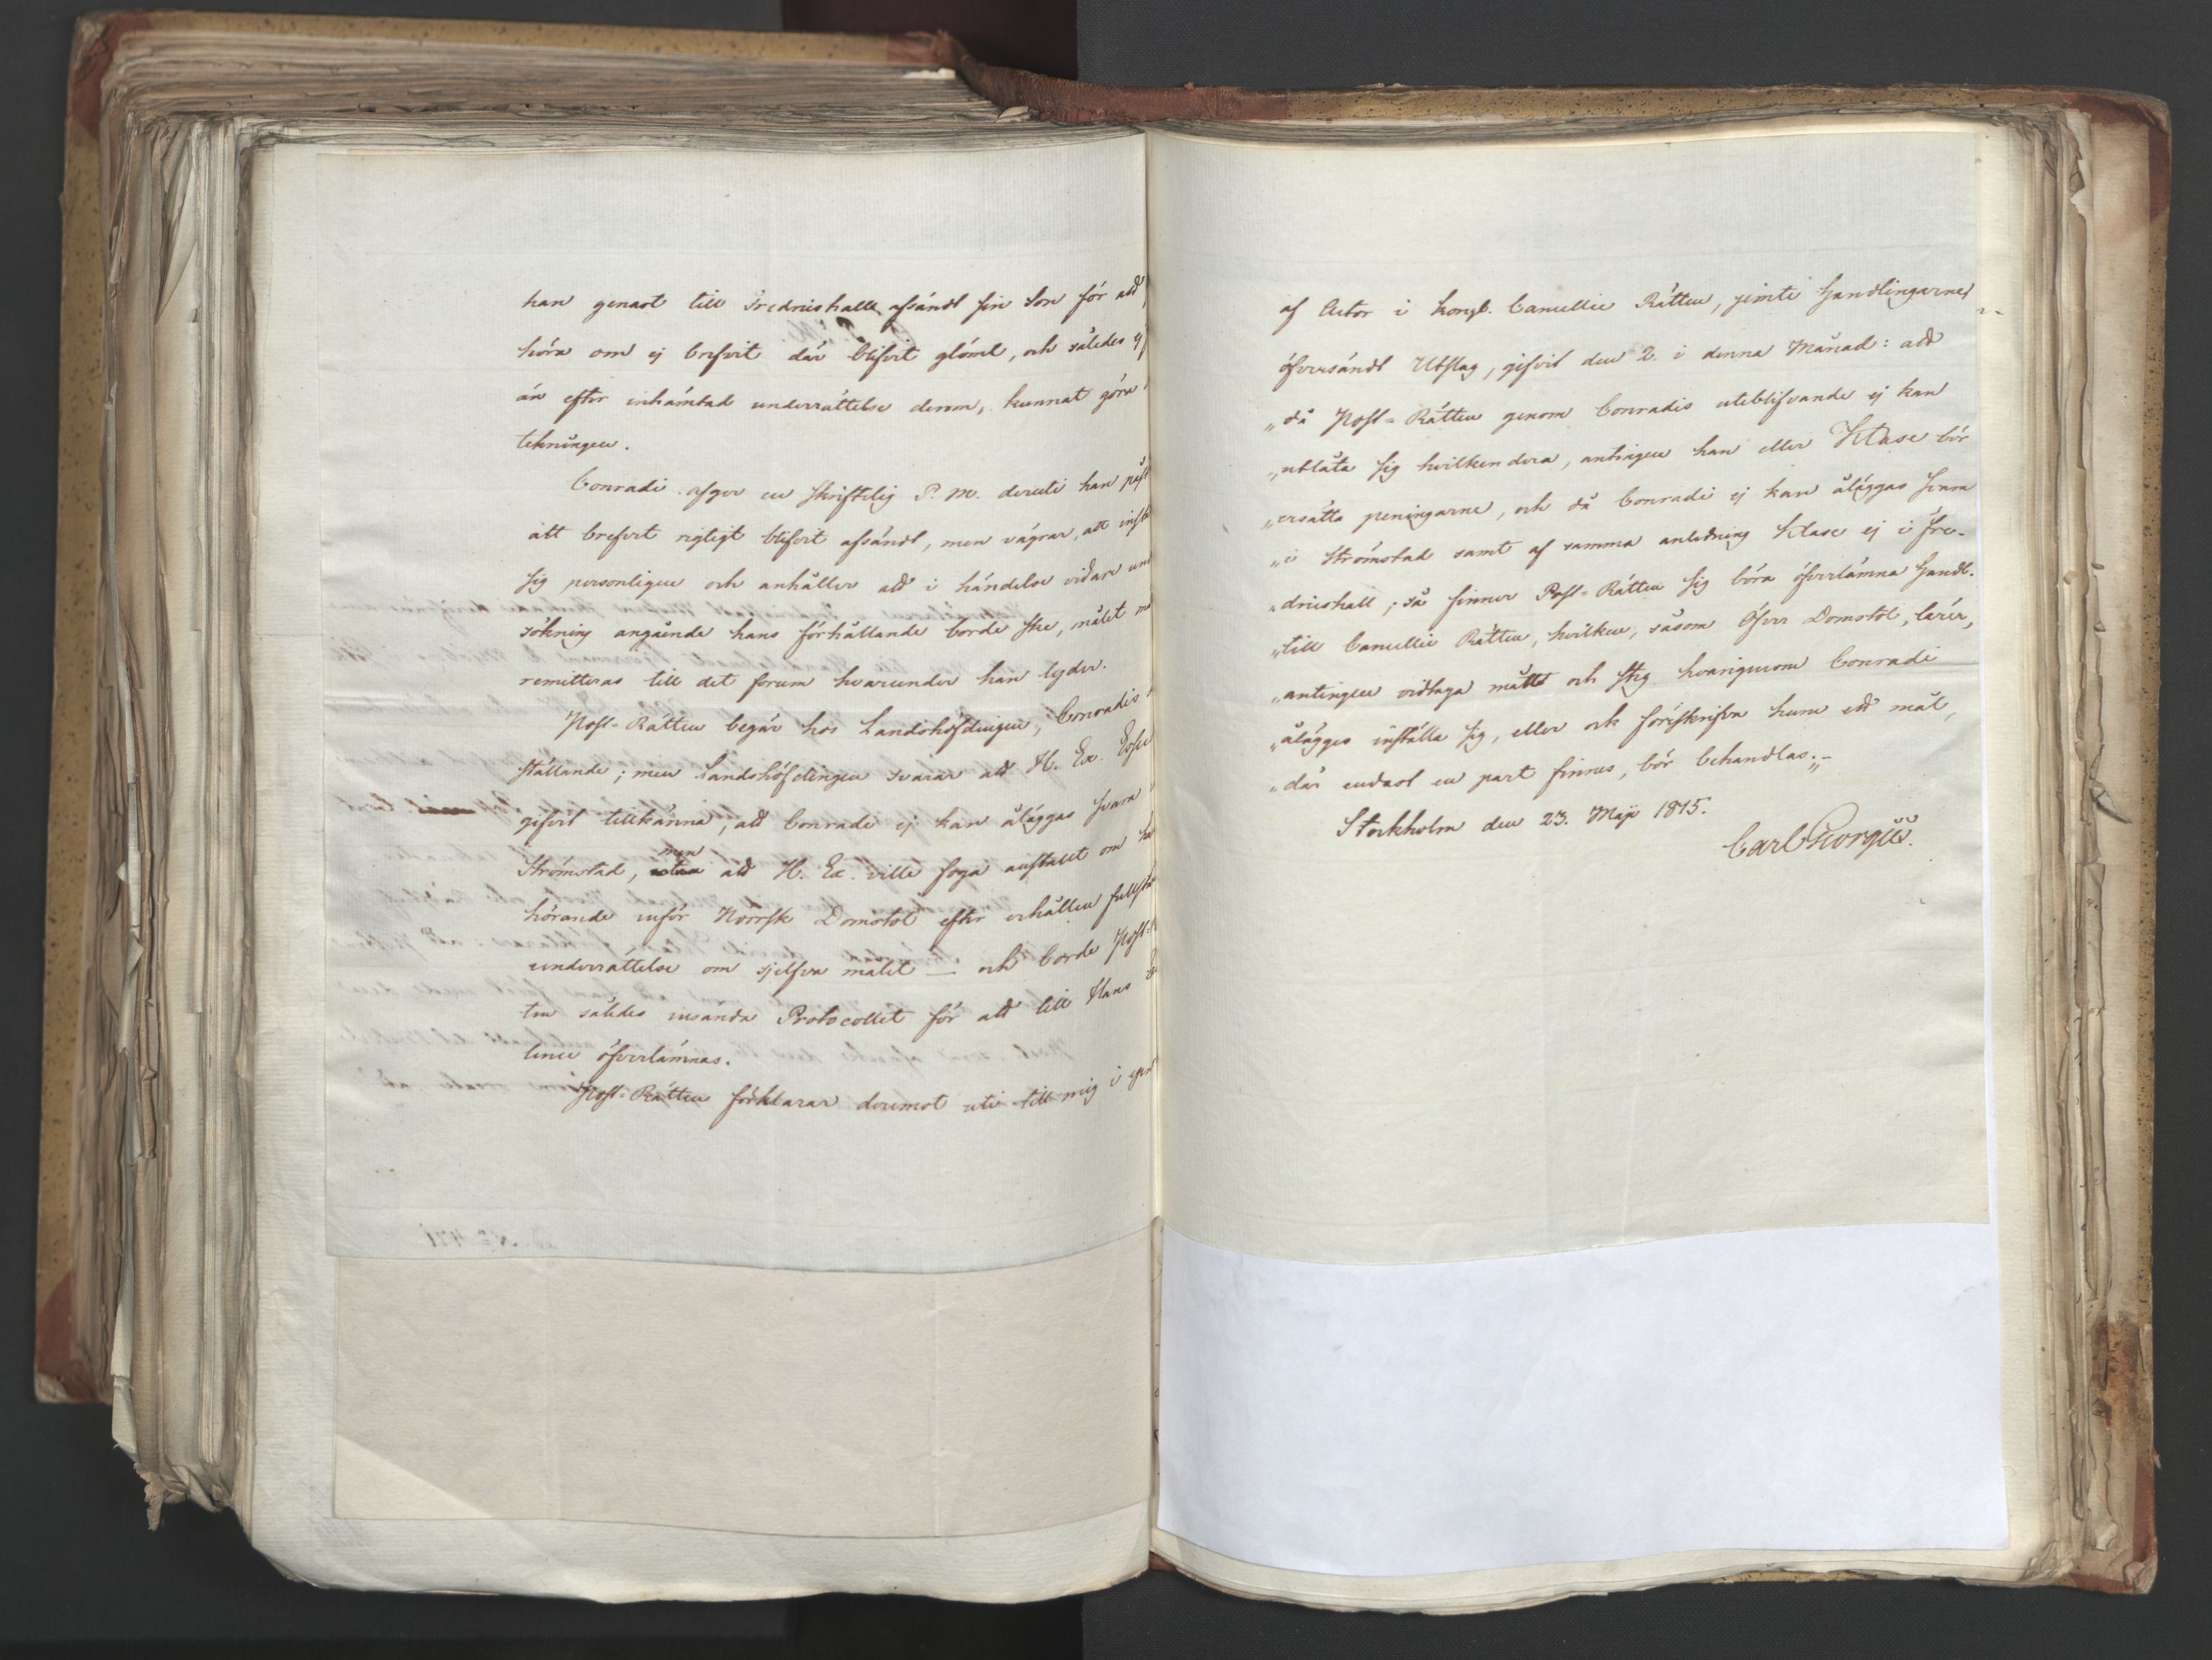 han genast till Fredricshalle afsändt sin Son för att
höra om ej brefvet där blifvit glömt, och således ej
än efter inhämtad underrättelse derom, kunnat göra
tekningen.
Conradi afger en skriftelig P. M. deruti han påst
att brefvet rigtigt blifvit afsändt, men vägrar, att instä
sig personligen och anhåller att i händelse vidare und
sökning angående hans förhållande borde ske, målet må
remitteras till det forum hvarunder han lyder.
Post-Rätten begär hos Landshöfdingen, Conradis
ställande; men Landshöfdingen svarar att H. Ex. Esse
gifvit tillkänna, att Conradi ej kan åläggas svara
Strömstad, men att H. Ex. ville foga anstallt om ha
hörande inför Norrsk Domstol efter erhållen fullst
underrättelse om sjelfva målet — och borde Post-
ten således insända Protocollet för att till Hans
lence öfverlämnas.
Post-Rätten förklarar deremot uti till mig i egen
af Actor i Kongl. Cancellie Rätten, jemte handlingarne,
öfversändt Utslag, gifvit den 2. i denna Månad: att
„då Post-Rätten genom Conradis uteblifvande ej kan
„utlåta sig hvilkendera, antingen han eller Klase bör
„ersätta peningarne, och då Conradi ej kan åläggas svara
„i Strömstad samt af samma anledning Klase ej i Fre-
„dricshall; så finner Post-Rätten sig böra öfverlämna handl.
„till Cancellie Rätten, hvilken, såsom Öfver Domstol, lärer,
„antingen vidtaga mått och steg hvarigenom Conradi
„ålägges inställa sig, eller och föreskrifva huru ett mål,
„där endast en part finnes, bör behandlas.„–
Stockholm den 23. Maji 1815.
Carl Georgii.